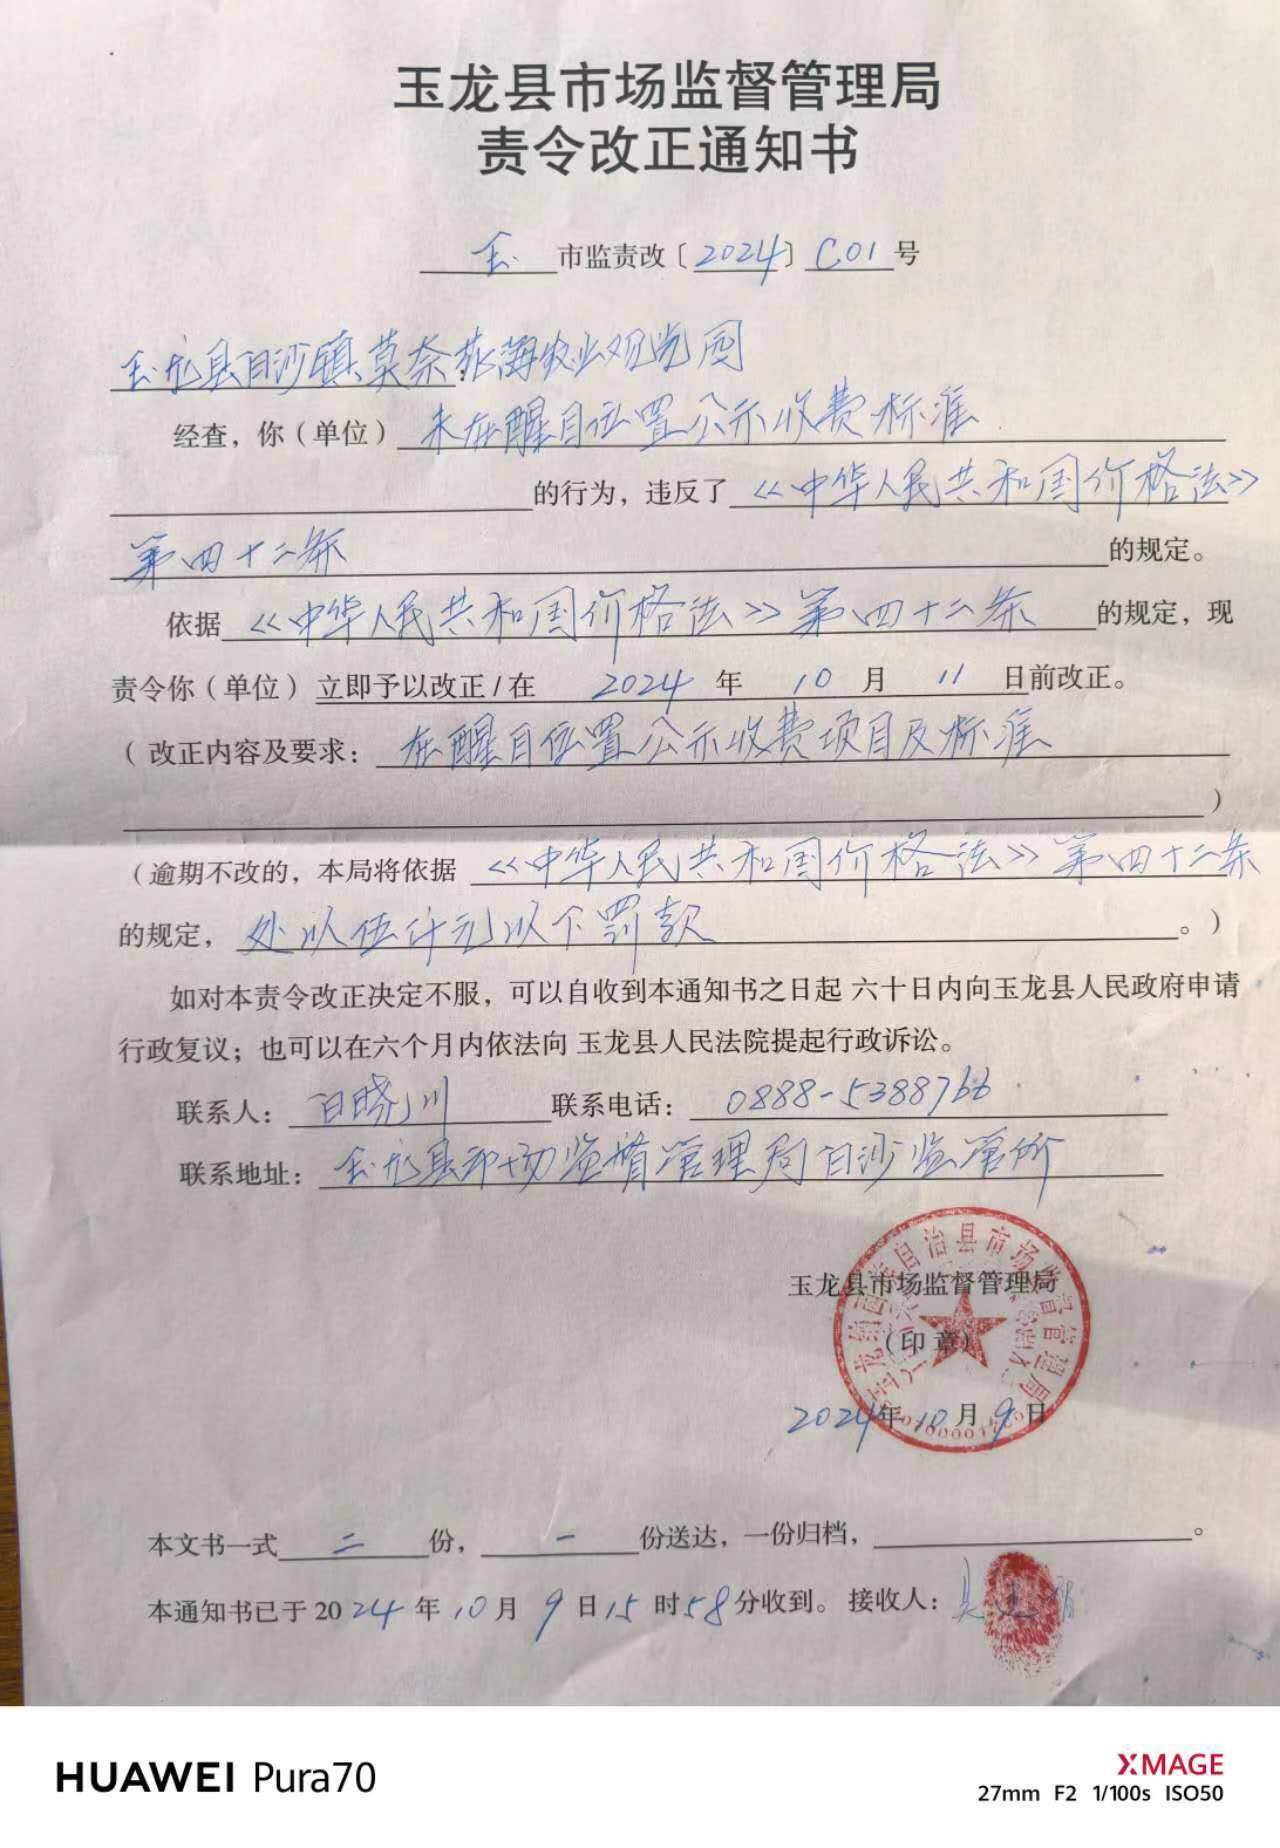 玉龙县市场监督管理局
责令改正通知书
玉 市监责改〔2024〕C01号
玉龙县白沙镇莫奈花海农业观光园
经查，你（单位）未在醒目位置公示收费标准
的行为，违反了《中华人民共和国价格法》
第四十二条 的规定。
依据《中华人民共和国价格法》第四十二条 的规定，现
责令你（单位）立即予以改正/在 2024 年 10 月 11 日前改正。
（改正内容及要求：在醒目位置公示收费项目及标准
）
（逾期不改的，本局将依据《中华人民共和国价格法》第四十二条
的规定，处以伍仟元以下罚款。）
如对本责令改正决定不服，可以自收到本通知书之日起 六十日内向玉龙县人民政府申请
行政复议；也可以在六个月内依法向 玉龙县人民法院提起行政诉讼。
联系人：白晓川 联系电话：0888-5388766
联系地址：玉龙县市场监督管理局白沙监管所
玉龙县市场监督管理局
（印章）
2024年10月9日
本文书一式 二 份，一 份送达，一份归档， 。
本通知书已于2024年10月9日15时58分收到。接收人：
HUAWEI Pura70
XMAGE
27mm F2 1/100s ISO50